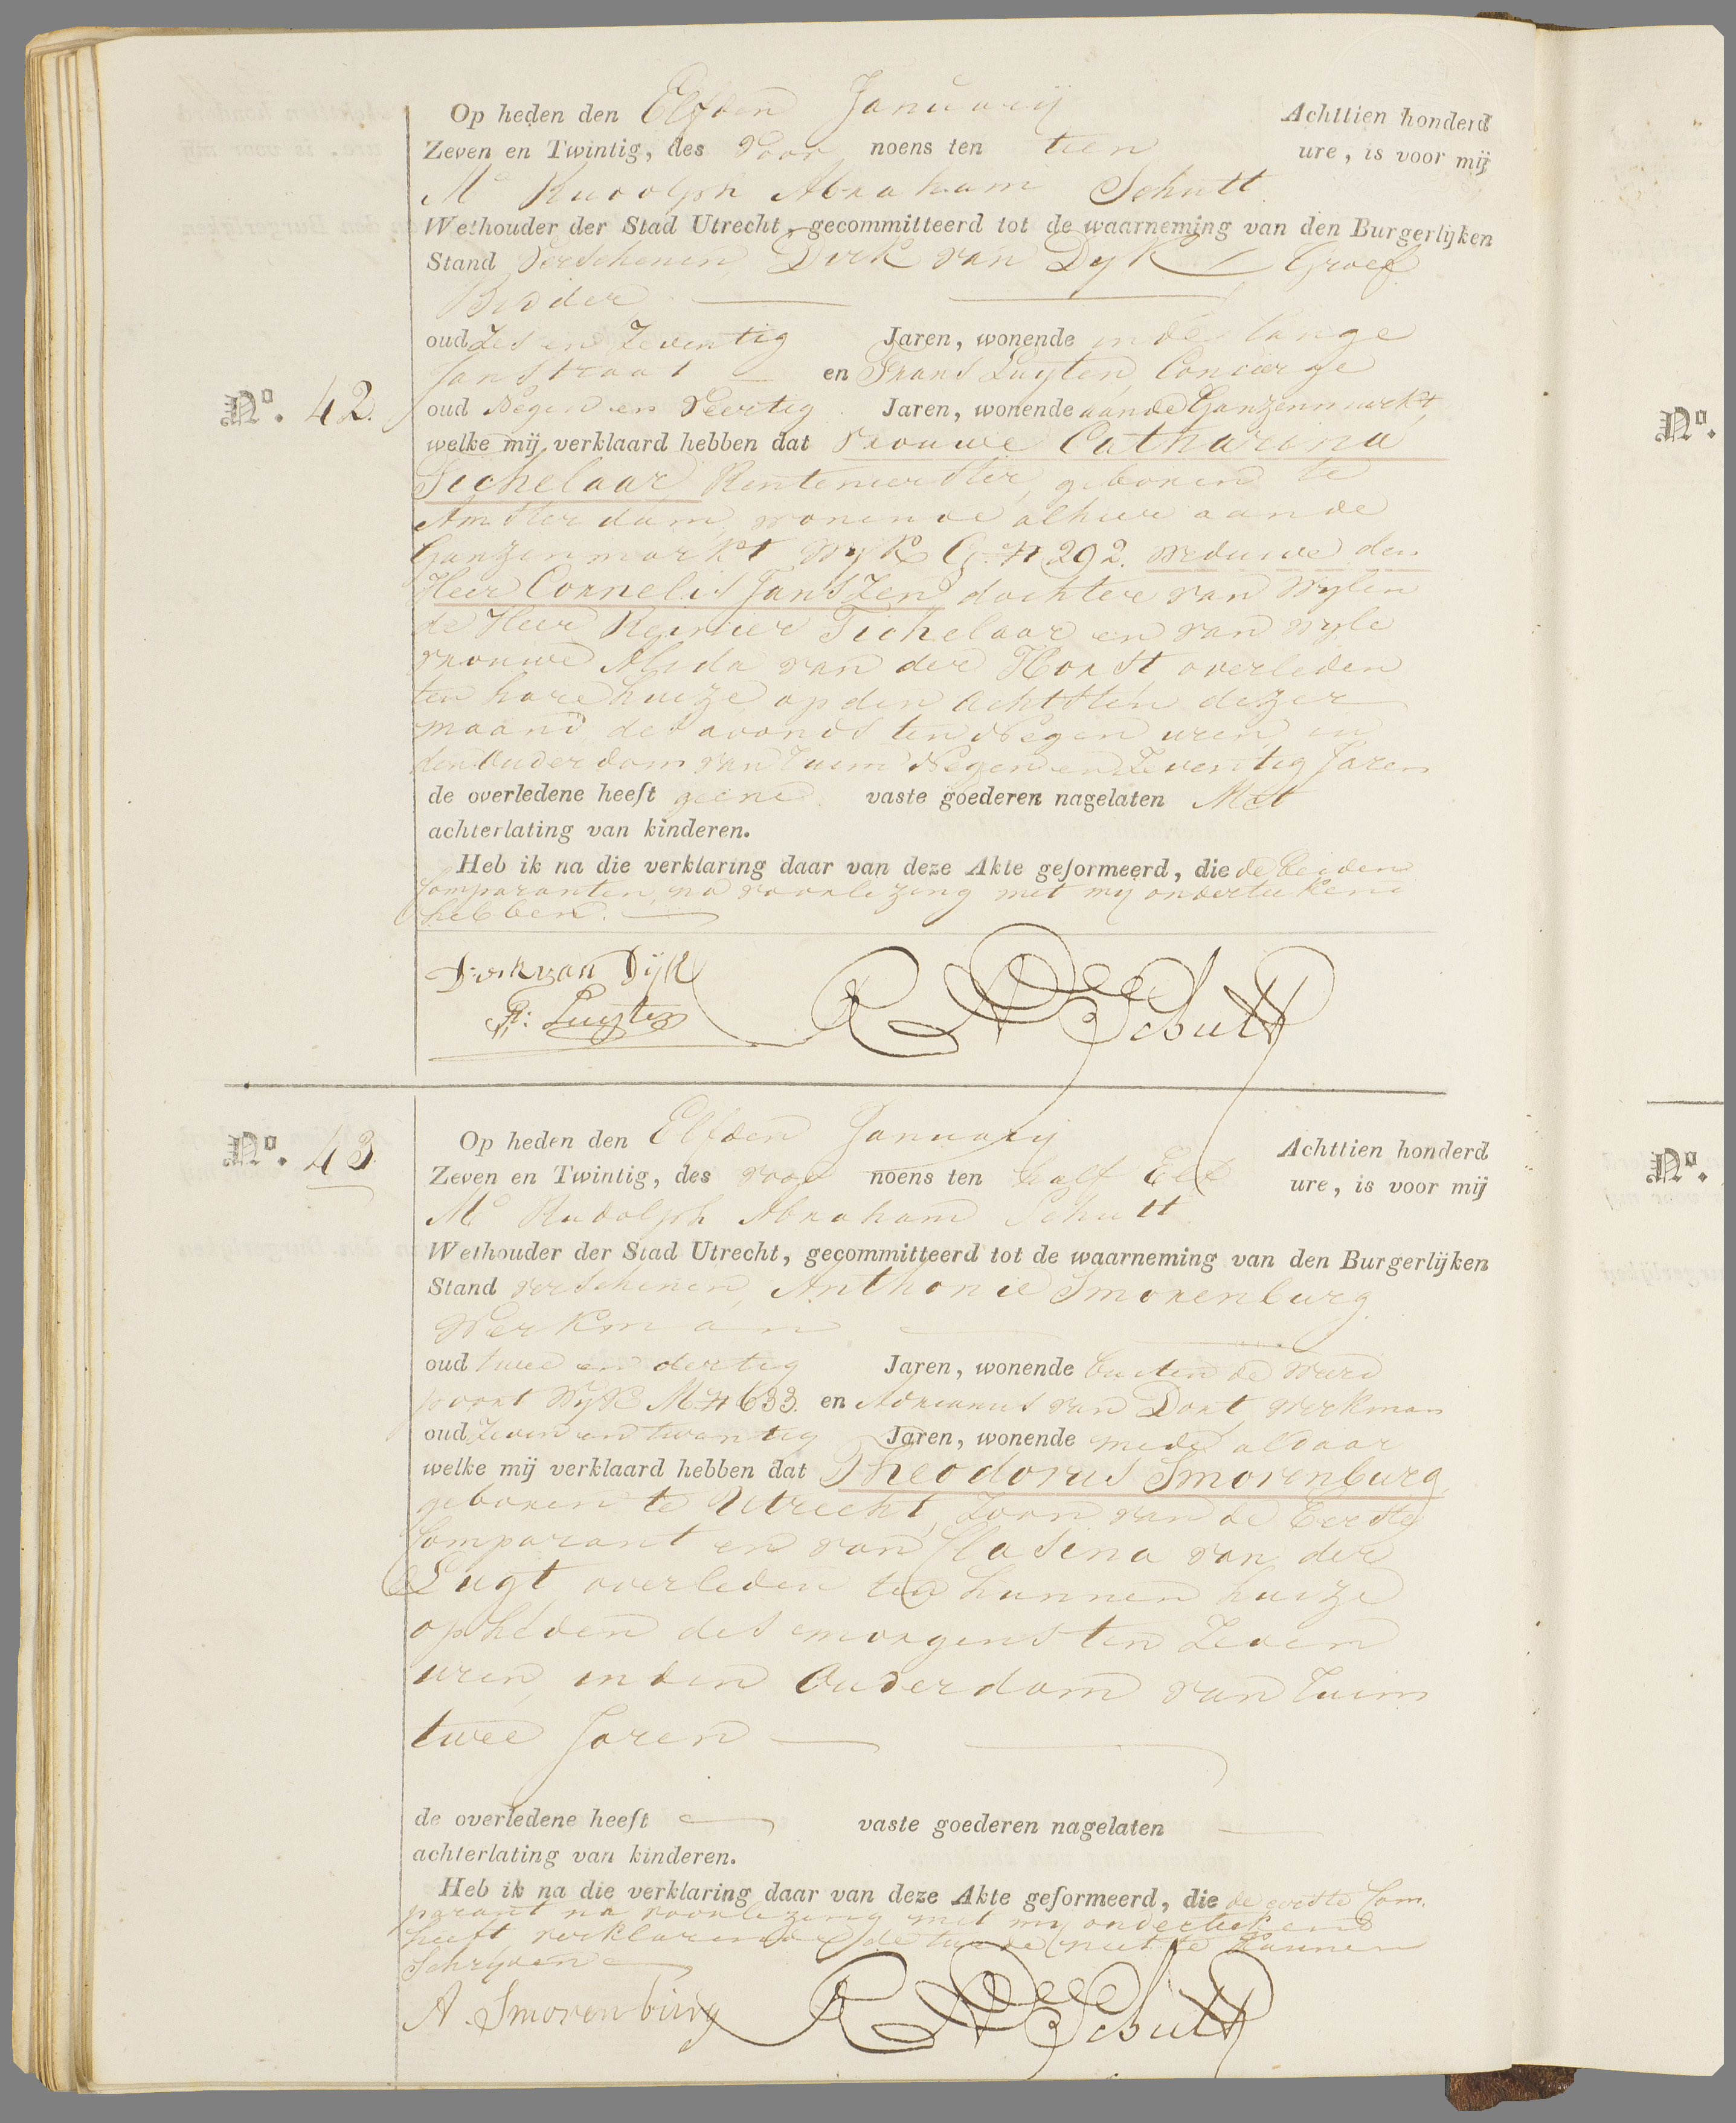 Op heden den Elfden Januarij Achttien honderd
Zeven en Twintig, des voor noens ten tien ure, is voor mij
Mr Rudolph Abraham Schutt
Wethouder der Stad Utrecht, gecommitteerd tot de waarneming van den Burgerlijken
Stand verschenen, Dirk van Dyk Groef
Bidder
oud Zes en Zeventig Jaren, wonende in de Lange
Janstraat en Frans Luyten, Concierge
No. 42. oud Negen en Veertig Jaren, wonende aan de Ganzenmarkt,
welke mij verklaard hebben dat Vrouwe Catharina
Tichelaar, Rentenierster, geboren te
Amsterdam, wonende alhier aan de
Ganzenmarkt Wyk G. N 292. weduwe den
Heer Cornelis Janszen dochter van Wylen
de Heer Reinier Tichelaar en van wyle
vrouwe Alida van der Horst, overleden
ten hare huize op den achtsten dezer
maand, des avonds ten Negen uren, in
den Ouderdom van ruim Negen en Zeventig Jaren
de overledene heeft geene vaste goederen nagelaten Met
achterlating van kinderen.
Heb ik na die verklaring daar van deze Akte geformeerd, die de beiden
Comparanten, na voorlezing met my ondertekend
hebben.
Dirk van Dijk
F: Luyten R A Schutt
No. 43 Op heden den Elfden Januarij Achttien honderd
Zeven en Twintig, des voor noens ten half Elf ure, is voor mij
Mr Rudolph Abraham Schutt
Wethouder der Stad Utrecht, gecommitteerd tot de waarneming van den Burgerlijken
Stand verschenen, Anthonie Smorenburg
Werkman
oud twee en dertig Jaren, wonende buiten de Waard
poort Wyk M N 633. en Adrianus van Dort, werkman
oud Zeven en twintig Jaren, wonende mede aldaar
welke mij verklaard hebben dat Theodorus Smorenburg,
geboren te Utrecht, Zoon van de Eerste
Comparant en van Clasina van der
Lugt, overleden ten hunnen huize
op heden des morgens ten Zeven
uren, in den Ouderdom van ruim
twee Jaren
de overledene heeft vaste goederen nagelaten
achterlating van kinderen.
Heb ik na die verklaring daar van deze Akte geformeerd, die de eerste Com.
parant na voorlezing met my ondertekend
heeft verklarende de tweede niet te kunnen
Schryven
A. Smorenburg R A Schutt
No.
No.